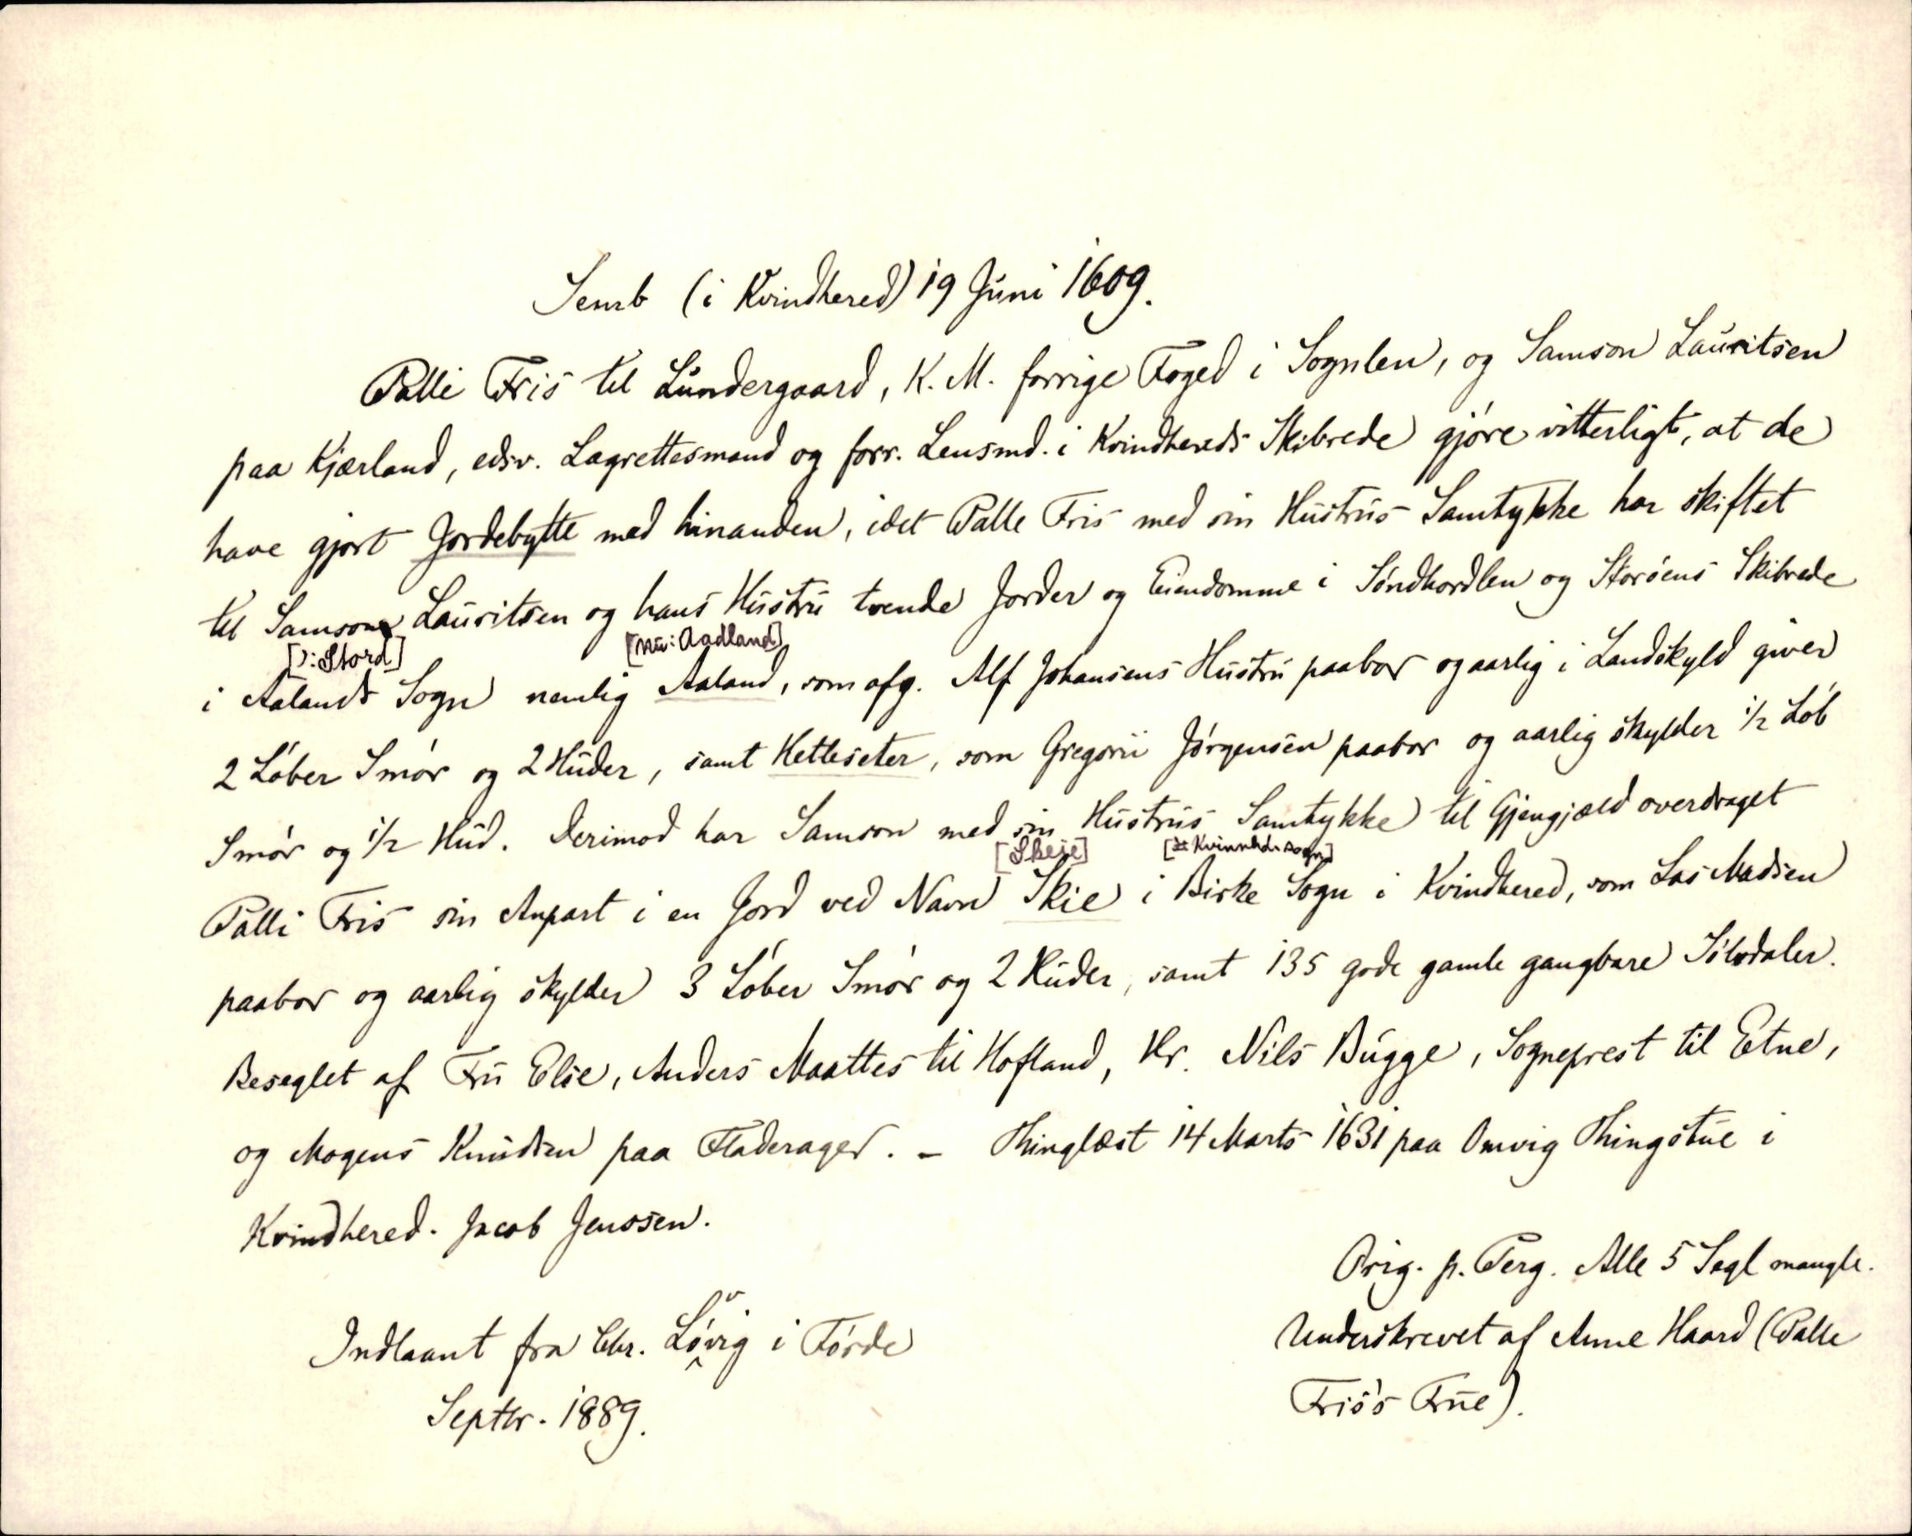 Semb (i Kvindhered) 19 Juni 1609.
Palli Fris til Lundergaard, K. M. forrige Foged i Sognlen, og Samson Lauritsen
paa Kjærland, edsv. Lagrettesmand og forr. Lensmd. i Kvindhereds Skibrede gjøre vitterligt, at de
have gjort Jordebytte med hinanden, idet Palle Fris med sin Hustrus Samtykke har skiftet
til Samson Lauritsen og hans Hustru tvende Jorder og Eiendomme i Søndhordlen og Storøens Skibrede
[ɔ: Stord] [nu: Aadland]
i Aalands Sogn nemlig Aaland, som afg. Alf Johansens Hustru paabor og aarlig i Landskyld giver
2 Løber Smør og 2 Huder, samt Hetleseter, som Gregorii Jørgensen paabor og aarlig skylder 1/2 Løb
Smør og 1/2 Hud. Derimod har Samson med sin Hustrus Samtykke til Gjengjæld overdraget
[Skeie] [Kvinnh. sogn]
Palli Fris sin Anpart i en Jord ved Navn Skie i Birke Sogn i Kvindhered, som Las Madsen
paabor og aarlig skylder 3 Løber Smør og 2 Huder, samt 135 gode gamle gangbare Sølvdaler.
Beseglet af Fru Else, Anders Maattes til Hofland, Hr. Nils Bugge, Sogneprest til Etne,
og Mogens Knudsen paa Fladerager. – Thinglæst 14 Marts 1631 paa Omvig Thingstue i
Kvindhered. Jacob Jenssen.
Orig. p. Perg. Alle 5 Segl mangle.
Underskrevet af Anne Haard (Palle
Fris's Frue).
Indlaant fra Chr. Løvvig i Førde
Septbr. 1889.